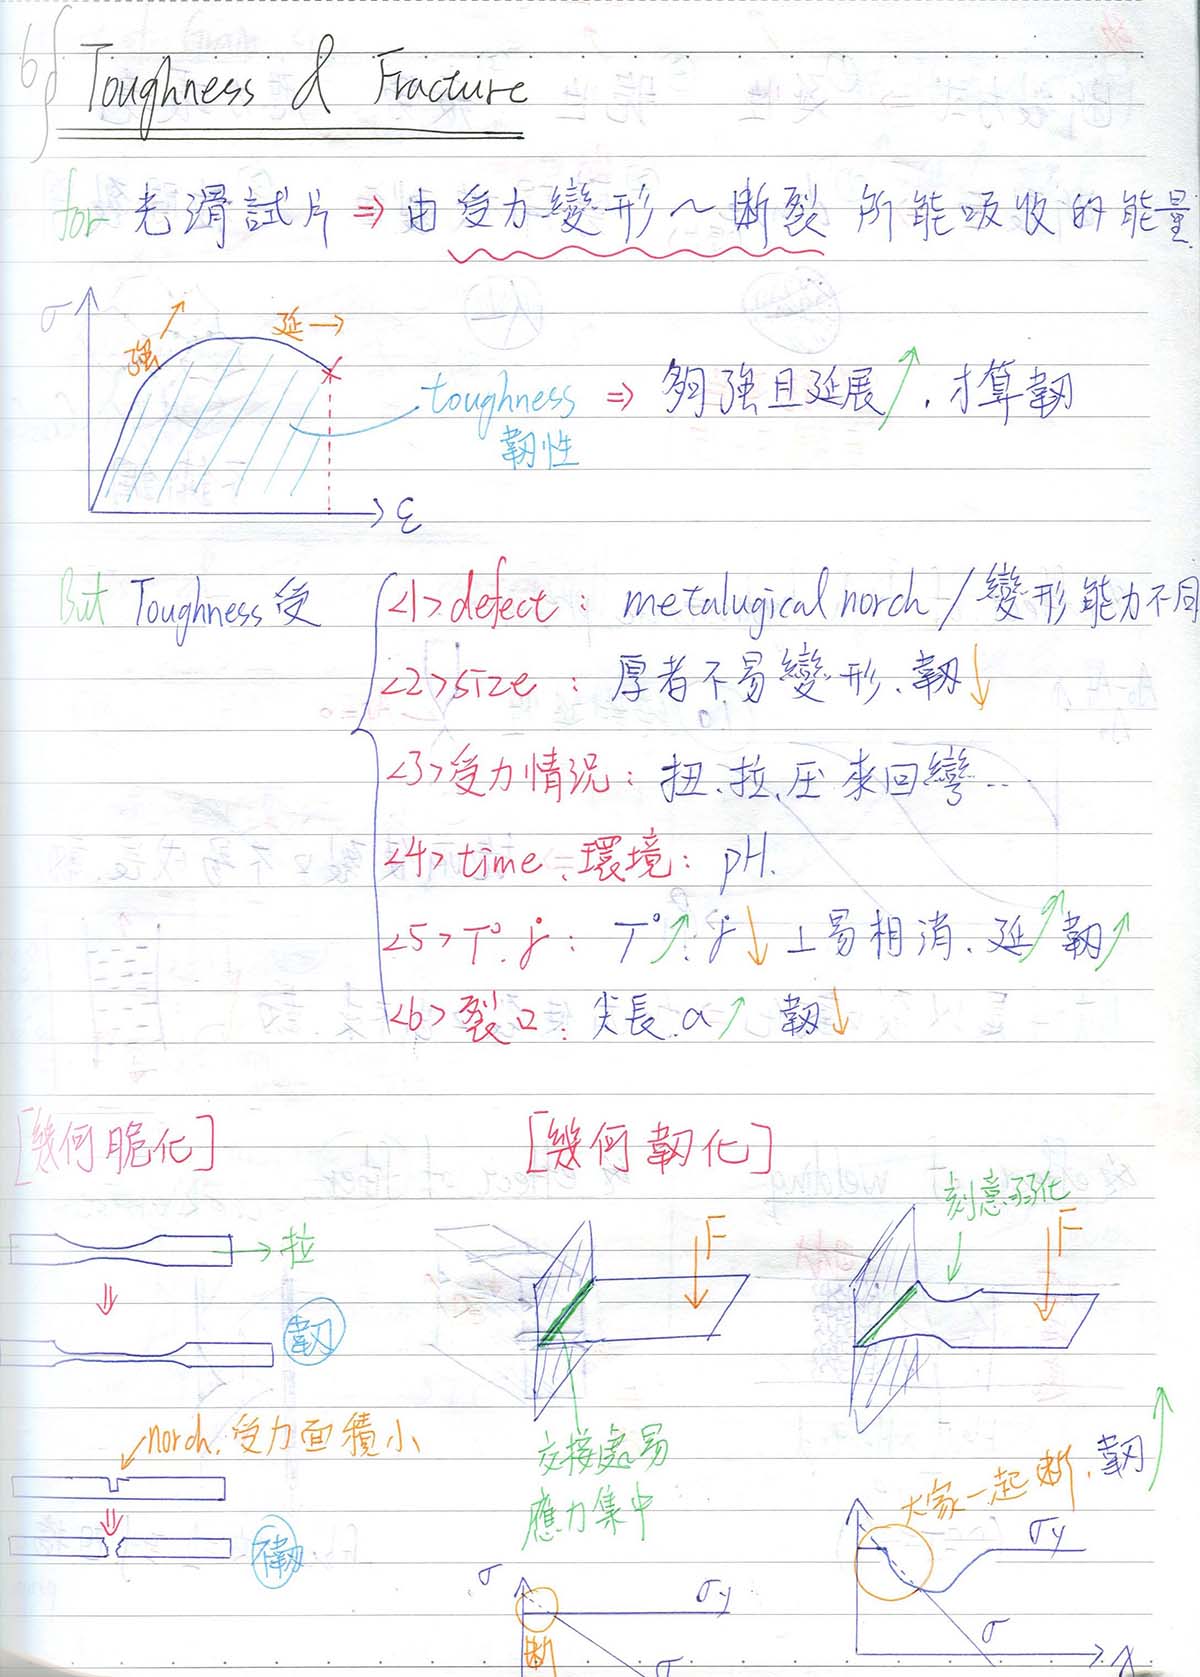 6 Toughness & Fracture
for 光滑試片 ⇒ 由受力變形~斷裂 所能吸收的能量
σ 強 延→
toughness ⇒ 夠強且延展↗, 才算韌
韌性
ε
But Toughness受
<1> defect : metalugical norch / 變形能力不同
<2> size : 厚者不易變形、韌↓
<3> 受力情況 : 扭、拉、压 來回彎..
<4> time、環境 : pH.
<5> T°. : T°↗. ↓ ⊥易相消、延↗韌↗
<6> 裂口 : 尖長. a↗ 韌↓
[幾何脆化] [幾何韌化]
刻意弱化
→拉 F F
韌
norch, 受力面積小
交接處易
應力集中
大家一起斷, 韌↗
不韌
σ σy σy
斷
σ σ x